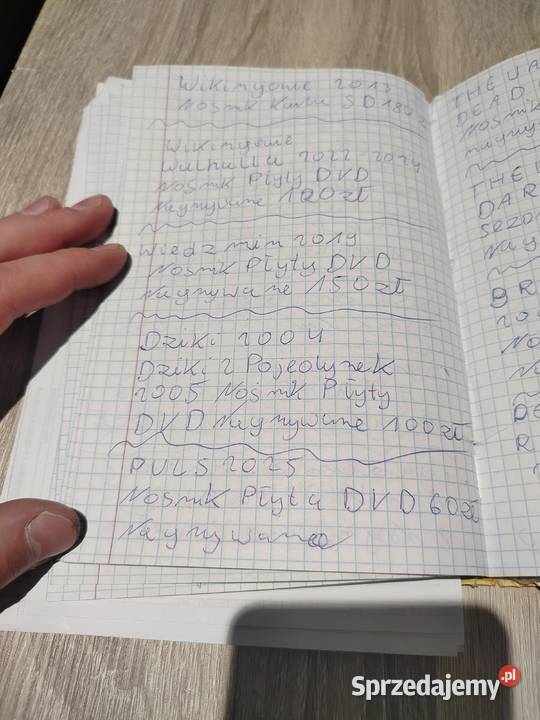 Wikingowie 2013
Nośnik Karta SD 180
Wikingowie
Walhalla 2022 2024
Nośnik Płyty DVD
Nagrywane 120zł
Wiedzmin 2019
Nośnik Płyty DVD
Nagrywane 150zł
Dziki 2004
Dziki 2 Pojedynek
2005 Nośnik Płyty
DVD Nagrywane 100zł
PULS 2025
Nośnik Płyta DVD 60zł
Nagrywane
THE WA
DEAD
Nośnik
THE
DAR
SEZO
Nag
BR
200
No
Na
DE
R
Sprzedajemy.pl